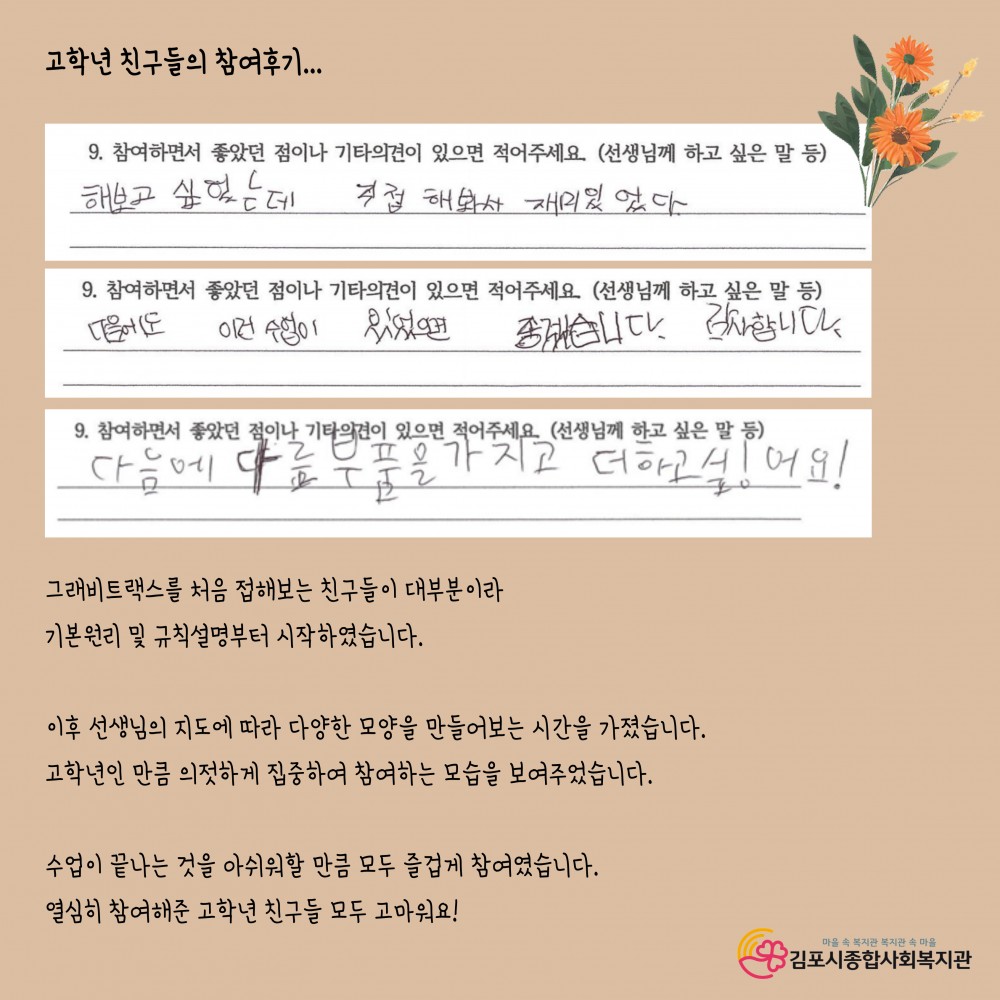 고학년 친구들의 참여후기...
9. 참여하면서 좋았던 점이나 기타의견이 있으면 적어주세요. (선생님께 하고 싶은 말 등)
해보고 싶었는데 직접 해봐서 재미있었다.
9. 참여하면서 좋았던 점이나 기타의견이 있으면 적어주세요. (선생님께 하고 싶은 말 등)
다음에도 이런 수업이 있었으면 좋겠습니다. 감사합니다.
9. 참여하면서 좋았던 점이나 기타의견이 있으면 적어주세요. (선생님께 하고 싶은 말 등)
다음에 다름 부품을 가지고 더하고싶어요!
그래비트랙스를 처음 접해보는 친구들이 대부분이라
기본원리 및 규칙설명부터 시작하였습니다.
이후 선생님의 지도에 따라 다양한 모양을 만들어보는 시간을 가졌습니다.
고학년인 만큼 의젓하게 집중하여 참여하는 모습을 보여주었습니다.
수업이 끝나는 것을 아쉬워할 만큼 모두 즐겁게 참여였습니다.
열심히 참여해준 고학년 친구들 모두 고마워요!
마을 속 복지관 복지관 속 마을
김포시종합사회복지관